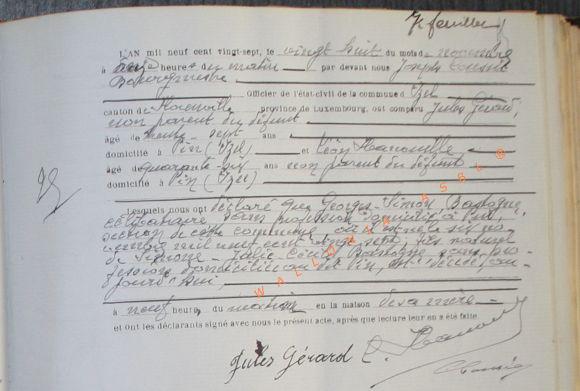 7e feuillet
L'AN mil neuf cent vingt-sept, le vingt huit du mois de novembre
à onze heures du matin par devant nous Joseph
Bourgmestre
Officier de l'état-civil de la commune d'Izel
canton de Florenville province de Luxembourg, ont comparu Jules Gérard,
non parent du défunt
âgé de trente-sept ans
domicilié à Pin (Izel) et Léon
âgé de quarante six ans non parent du défunt
domicilié à Pin (Izel)
25
Lesquels nous ont déclaré que Georges-Simon Bastogne
célibataire, sans profession domicilié à Pin,
section de cette commune, où il est né le six no-
vembre mil neuf cent vingt sept, fils naturel
de Simone - Cécile Bastogne sans pro-
fession domiciliée au dit Pin, est décédé, au-
jourd'hui,
à neuf heures du matin en la maison de sa mère
et ont les déclarants signé avec nous le présent acte, après que lecture leur en a été faite.
Jules Gérard L.
WALLONIA ASBL ©